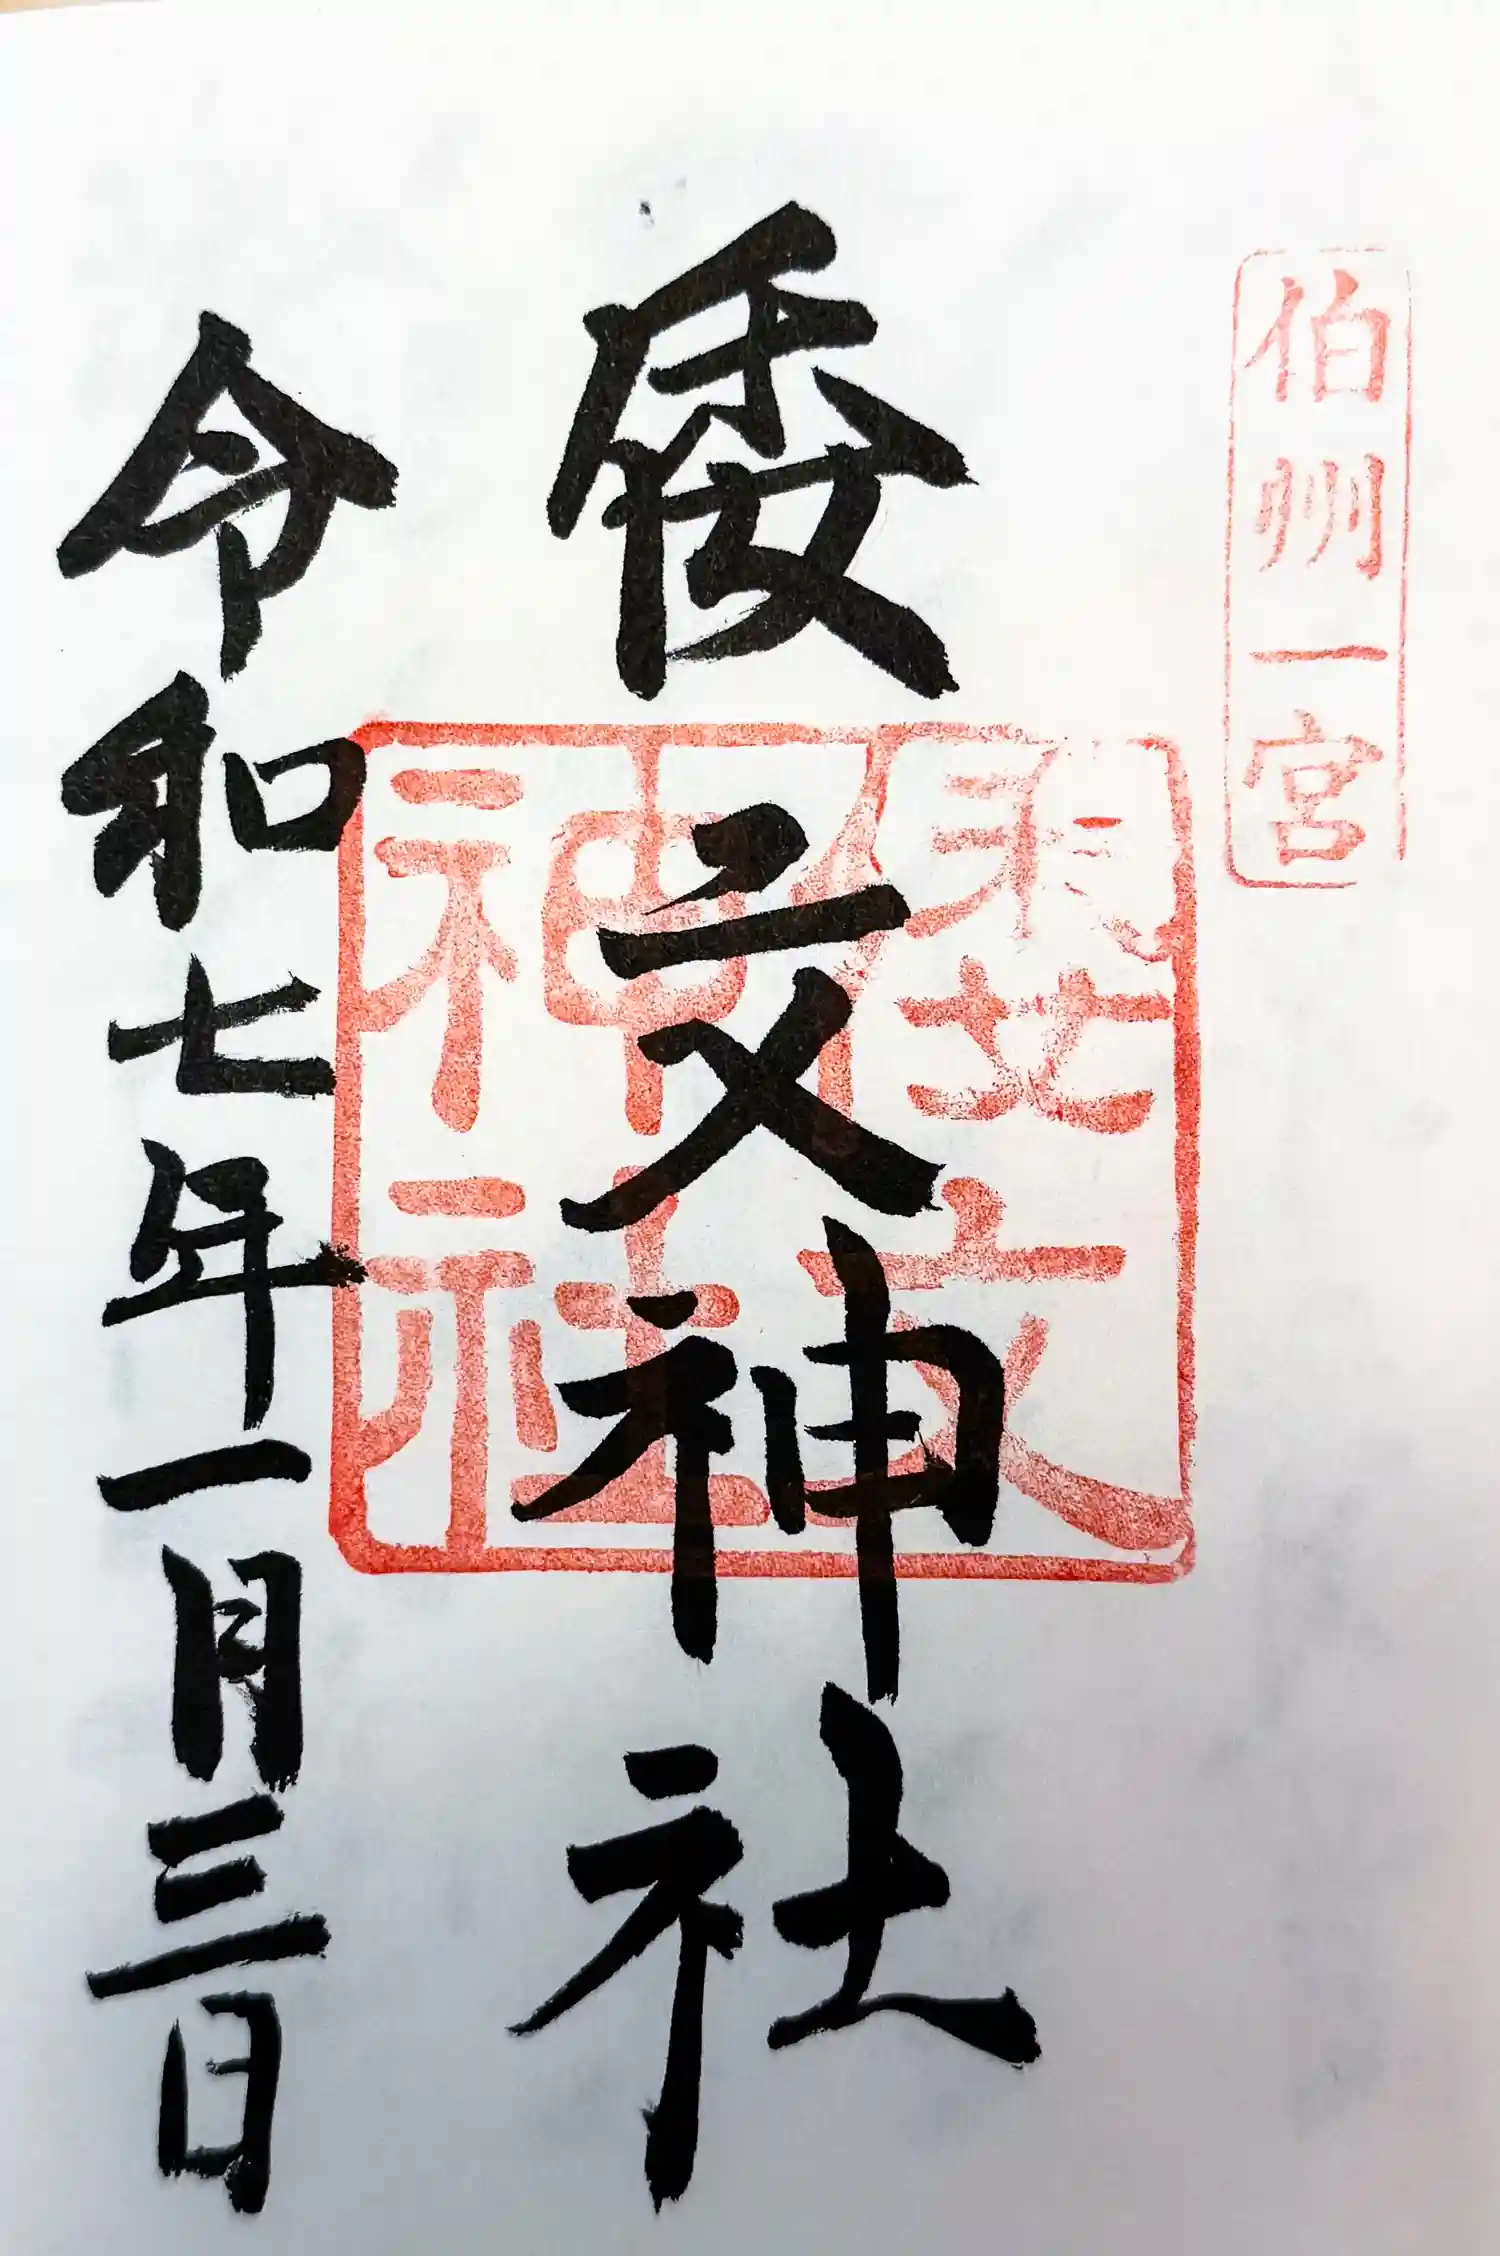 伯州一宮
倭文神社
倭文
神社
令和七年一月三日